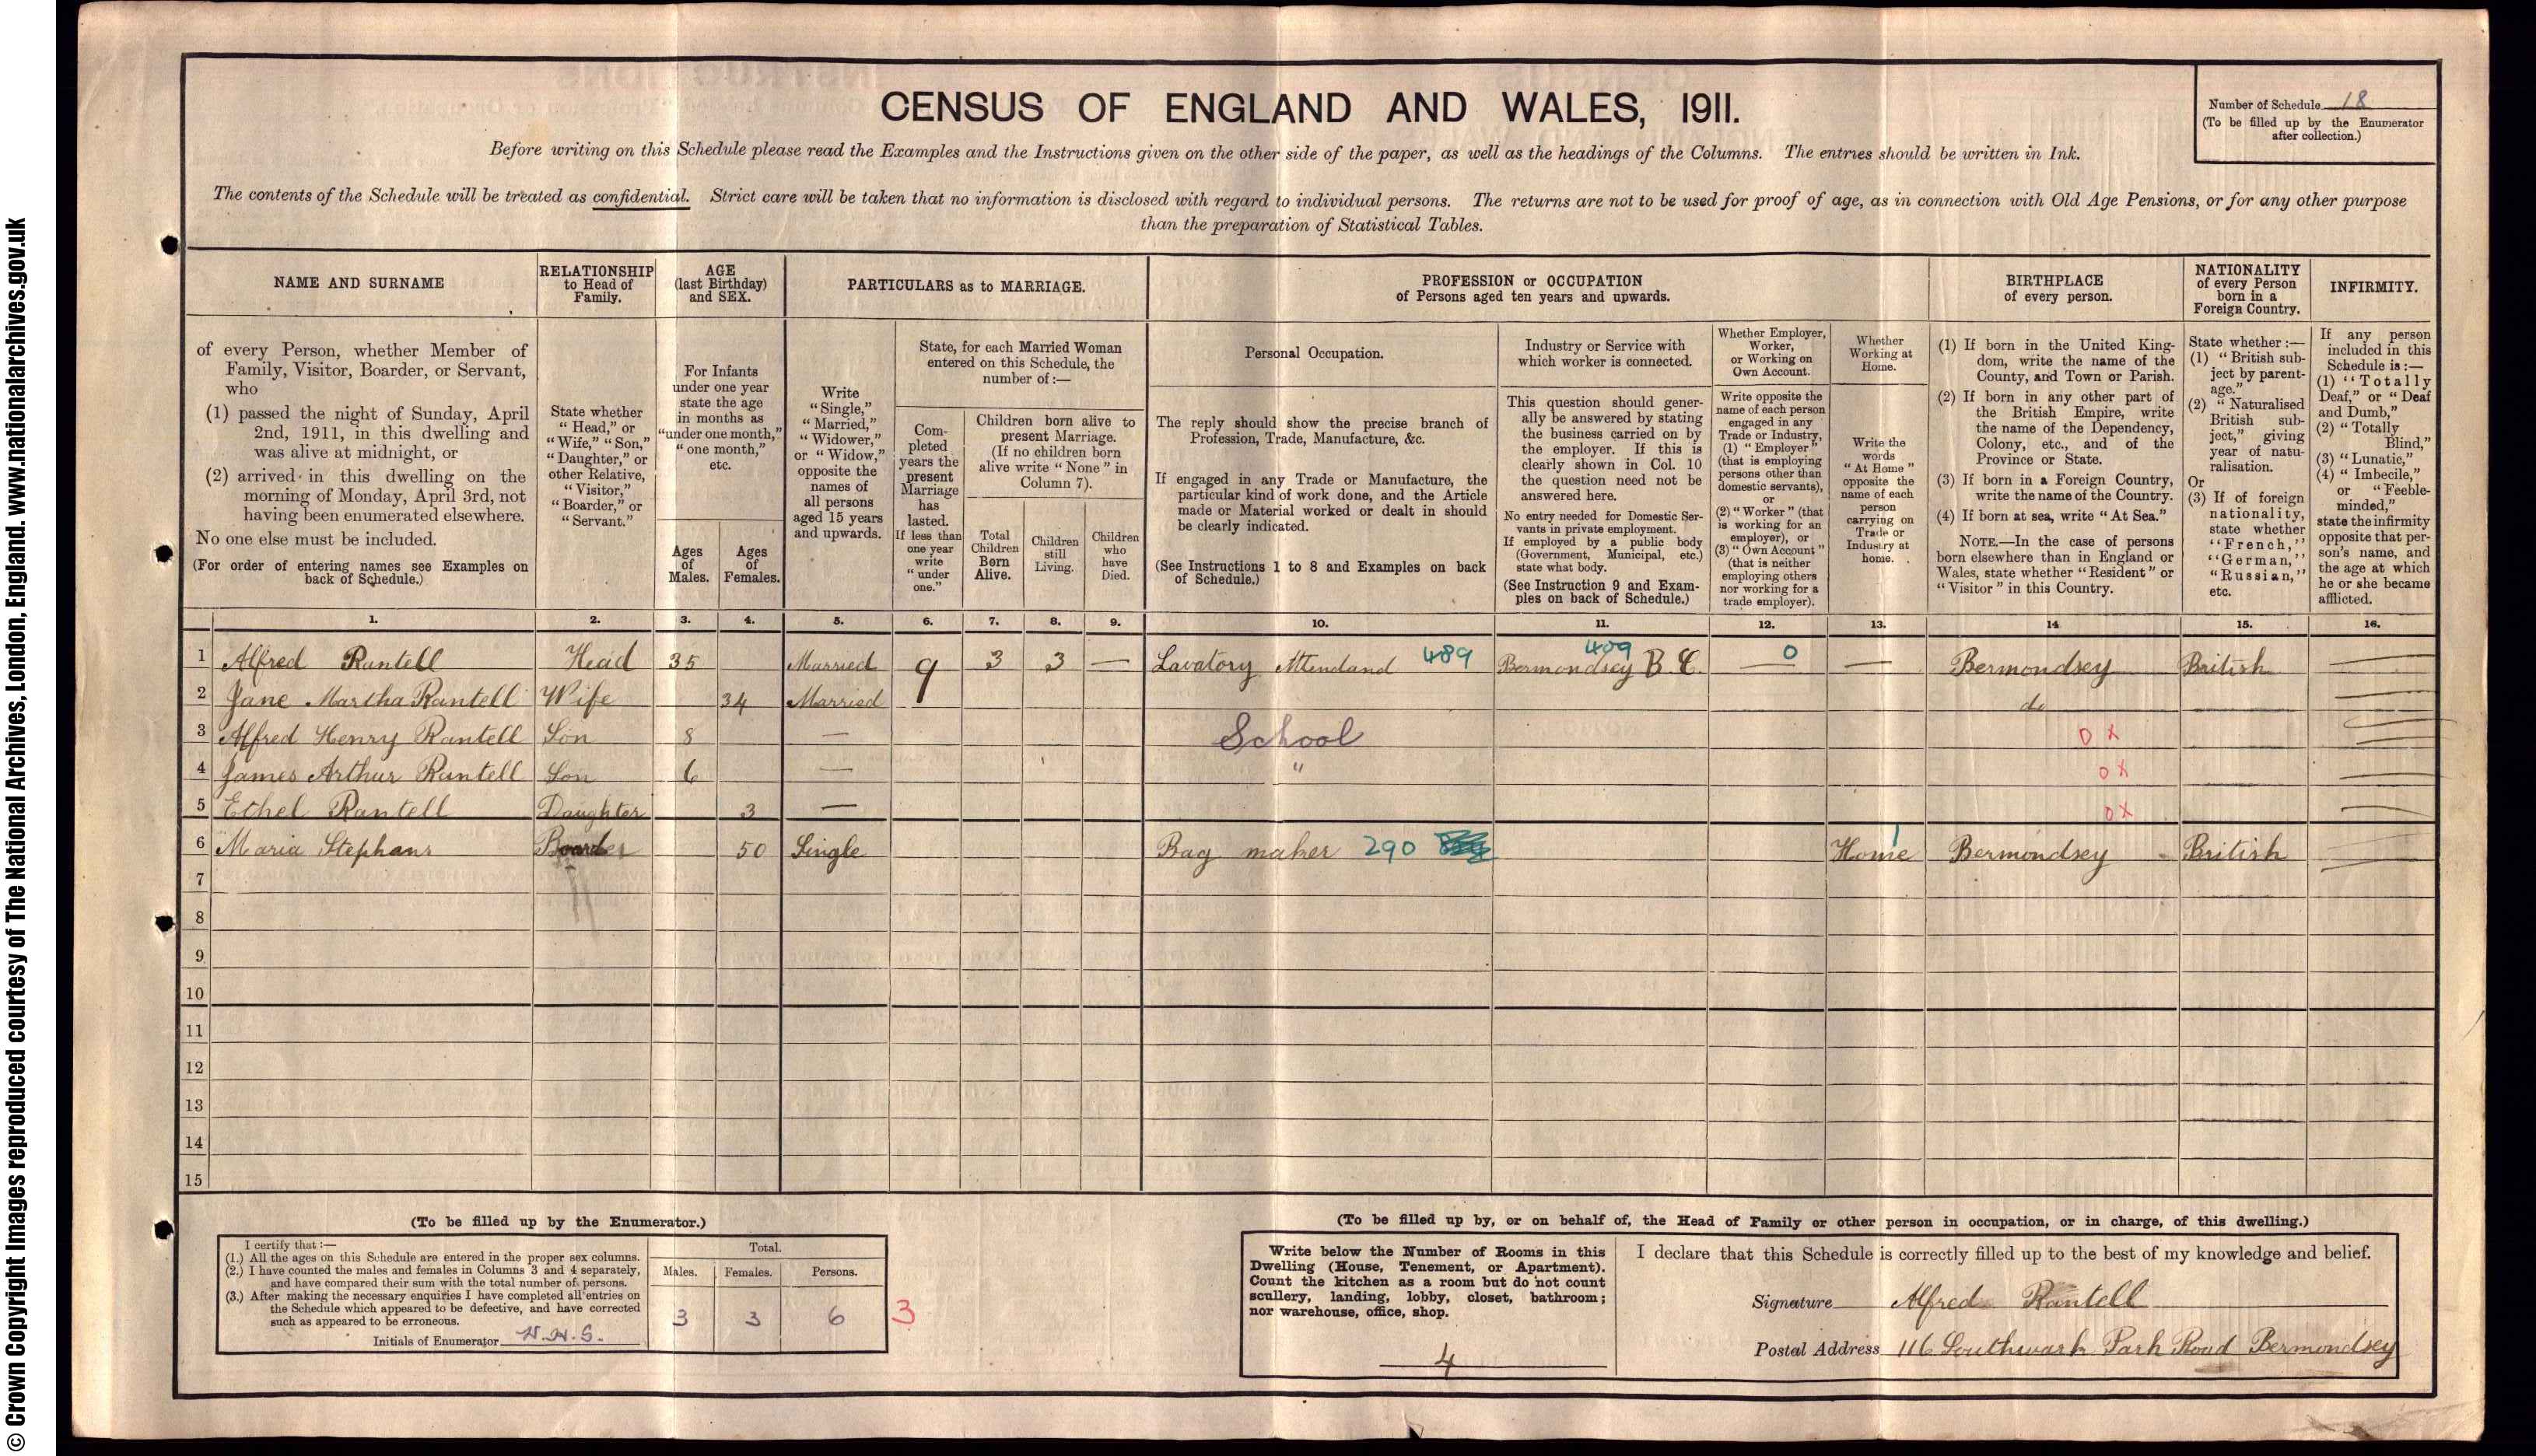 © Crown Copyright Images reproduced courtesy of The National Archives, London, England. www.nationalarchives.gov.uk
CENSUS OF ENGLAND AND WALES, 1911.
Number of Schedule 18
(To be filled up by the Enumerator
after collection.)
Before writing on this Schedule please read the Examples and the Instructions given on the other side of the paper, as well as the headings of the Columns. The entries should be written in Ink.
The contents of the Schedule will be treated as confidential. Strict care will be taken that no information is disclosed with regard to individual persons. The returns are not to be used for proof of age, as in connection with Old Age Pensions, or for any other purpose
than the preparation of Statistical Tables.
NAME AND SURNAME
of every Person, whether Member of
Family, Visitor, Boarder, or Servant,
who
(1) passed the night of Sunday, April
2nd, 1911, in this dwelling and
was alive at midnight, or
(2) arrived in this dwelling on the
morning of Monday, April 3rd, not
having been enumerated elsewhere.
No one else must be included.
(For order of entering names see Examples on
back of Schedule.)
RELATIONSHIP
to Head of
Family.
State whether
"Head," or
"Wife," "Son,"
"Daughter," or
other Relative,
"Visitor,"
"Boarder," or
"Servant."
AGE
(last Birthday)
and SEX.
For Infants
under one year
state the age
in months as
"under one month,"
"one month,"
etc.
Ages
of
Males.
Ages
of
Females.
PARTICULARS as to MARRIAGE.
Write
"Single,"
"Married,"
"Widower,"
or "Widow,"
opposite the
names of
all persons
aged 15 years
and upwards.
State, for each Married Woman
entered on this Schedule, the
number of:—
Com-
pleted
years the
present
Marriage
has
lasted.
If less than
one year
write
"under
one."
Children born alive to
present Marriage.
(If no children born
alive write "None" in
Column 7).
Total
Children
Born
Alive.
Children
still
Living.
Children
who
have
Died.
PROFESSION or OCCUPATION
of Persons aged ten years and upwards.
Personal Occupation.
The reply should show the precise branch of
Profession, Trade, Manufacture, &c.
If engaged in any Trade or Manufacture, the
particular kind of work done, and the Article
made or Material worked or dealt in should
be clearly indicated.
(See Instructions 1 to 8 and Examples on back
of Schedule.)
Industry or Service with
which worker is connected.
This question should gener-
ally be answered by stating
the business carried on by
the employer. If this is
clearly shown in Col. 10
the question need not be
answered here.
No entry needed for Domestic Ser-
vants in private employment.
If employed by a public body
(Government, Municipal, etc.)
state what body.
(See Instruction 9 and Exam-
ples on back of Schedule.)
Whether Employer,
Worker,
or Working on
Own Account.
Write opposite the
name of each person
engaged in any
Trade or Industry,
(1) "Employer"
(that is employing
persons other than
domestic servants),
or
(2) "Worker" (that
is working for an
employer), or
(3) "Own Account"
(that is neither
employing others
nor working for a
trade employer).
Whether
Working at
Home.
Write the
words
"At Home"
opposite the
name of each
person
carrying on
Trade or
Industry at
home.
BIRTHPLACE
of every person.
(1) If born in the United King-
dom, write the name of the
County, and Town or Parish.
(2) If born in any other part of
the British Empire, write
the name of the Dependency,
Colony, etc., and of the
Province or State.
(3) If born in a Foreign Country,
write the name of the Country.
(4) If born at sea, write "At Sea."
NOTE.—In the case of persons
born elsewhere than in England or
Wales, state whether "Resident" or
"Visitor" in this Country.
NATIONALITY
of every Person
born in a
Foreign Country.
State whether:—
(1) "British sub-
ject by parent-
age."
(2) "Naturalised
British sub-
ject," giving
year of natu-
ralisation.
Or
(3) If of foreign
nationality,
state whether
"French,"
"German,"
"Russian,"
etc.
INFIRMITY.
If any person
included in this
Schedule is:—
(1) "Totally
Deaf," or "Deaf
and Dumb,"
(2) "Totally
Blind,"
(3) "Lunatic,"
(4) "Imbecile,"
or "Feeble-
minded,"
state the infirmity
opposite that per-
son's name, and
the age at which
he or she became
afflicted.
1. 2. 3. 4. 5. 6. 7. 8. 9. 10. 11. 12. 13. 14 15. 16.
1 Alfred Rantell Head 35 Married 9 3 3 — Lavatory Attendand 489 Bermondsey B.C. 409 0 — — Bermondsey British —
2 Jane Martha Rantell Wife 34 Married do —
3 Alfred Henry Rantell Son 8 — School 0 X —
4 James Arthur Rantell Son 6 — " 0 X —
5 Ethel Rantell Daughter 3 — 0 X —
6 Maria Stephans Boarder 50 Single Bag maker 290 Home 1 Bermondsey British —
7
8
9
10
11
12
13
14
15
(To be filled up by the Enumerator.)
I certify that:—
(1.) All the ages on this Schedule are entered in the proper sex columns.
(2.) I have counted the males and females in Columns 3 and 4 separately,
and have compared their sum with the total number of persons.
(3.) After making the necessary enquiries I have completed all entries on
the Schedule which appeared to be defective, and have corrected
such as appeared to be erroneous.
Initials of Enumerator W.H.S.
Total.
Males. Females. Persons.
3 3 6 3
(To be filled up by, or on behalf of, the Head of Family or other person in occupation, or in charge, of this dwelling.)
Write below the Number of Rooms in this
Dwelling (House, Tenement, or Apartment).
Count the kitchen as a room but do not count
scullery, landing, lobby, closet, bathroom;
nor warehouse, office, shop.
4
I declare that this Schedule is correctly filled up to the best of my knowledge and belief.
Signature Alfred Rantell
Postal Address 116 Southwark Park Road Bermondsey